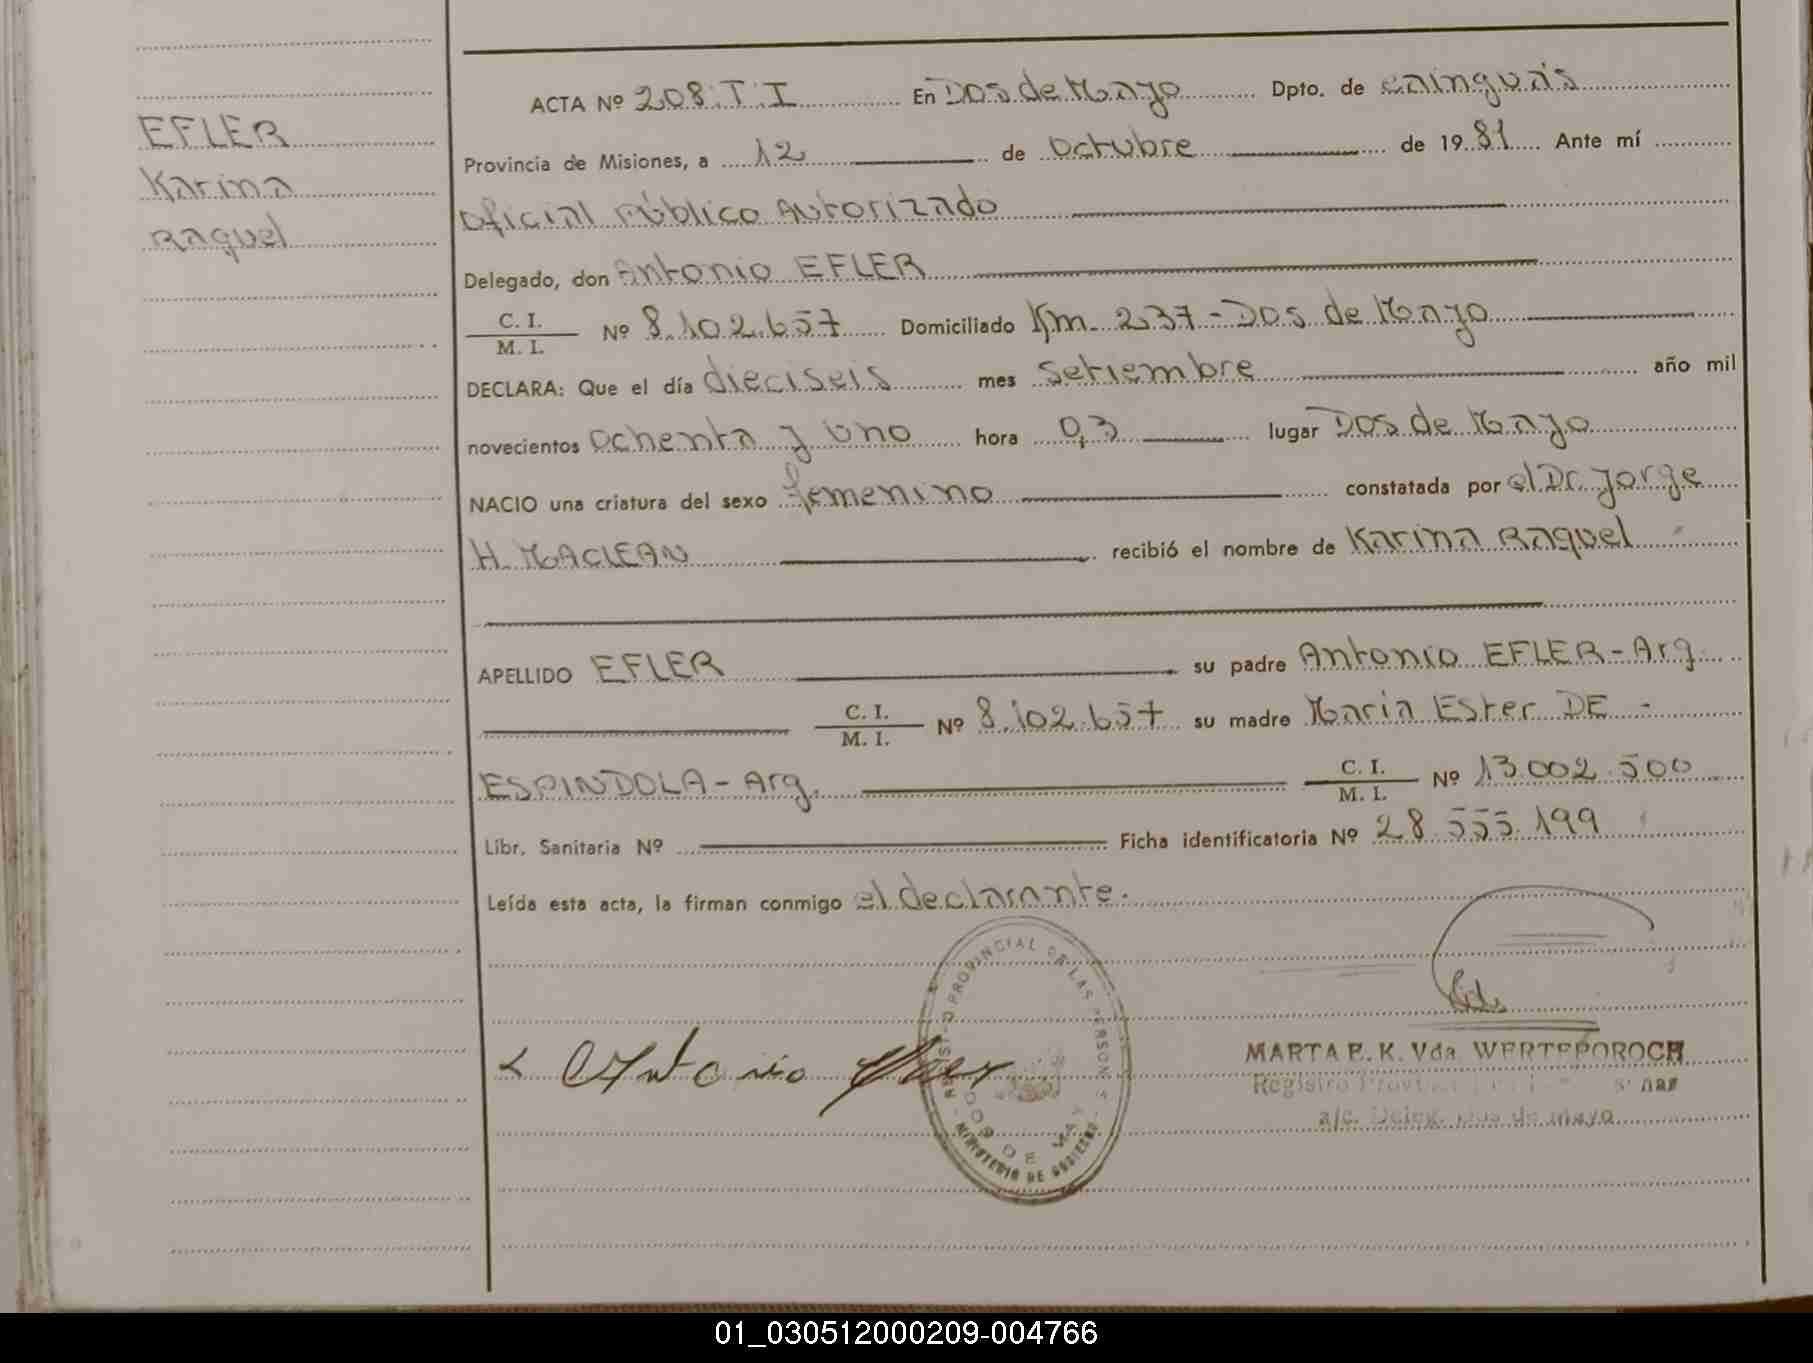 EFLER
Karina
Raquel
ACTA Nº 208.T.I En Dos de Mayo Dpto. de cainguás
Provincia de Misiones, a 12 de Octubre de 1981 Ante mí
Oficial Público Autorizado
Delegado, don Antonio EFLER
C. I.
M. I. Nº 8.102.657 Domiciliado Km. 237-Dos de Mayo
DECLARA: Que el día dieciseis mes setiembre año mil
novecientos ochenta y uno hora 0,3 lugar Dos de Mayo
NACIO una criatura del sexo femenino constatada por el Dr. Jorge
H. MACLEAN recibió el nombre de Karina Raquel
APELLIDO EFLER su padre Antonio EFLER-Arg.
C. I.
M. I. Nº 8.102.657 su madre Maria Ester DE -
ESPINDOLA-Arg. C. I.
M. I. Nº 13.002.500
Libr. Sanitaria Nº Ficha identificatoria Nº 28.555.199
Leída esta acta, la firman conmigo el declarante.
Antonio
PROVINCIAL DE LAS PERSONAS
DOS DE MAYO
MINISTERIO DE GOBIERNO
MARTA E. K. Vda. WERTEPOROCH
Registro
a/c. Deleg. Dos de Mayo
01_030512000209-004766